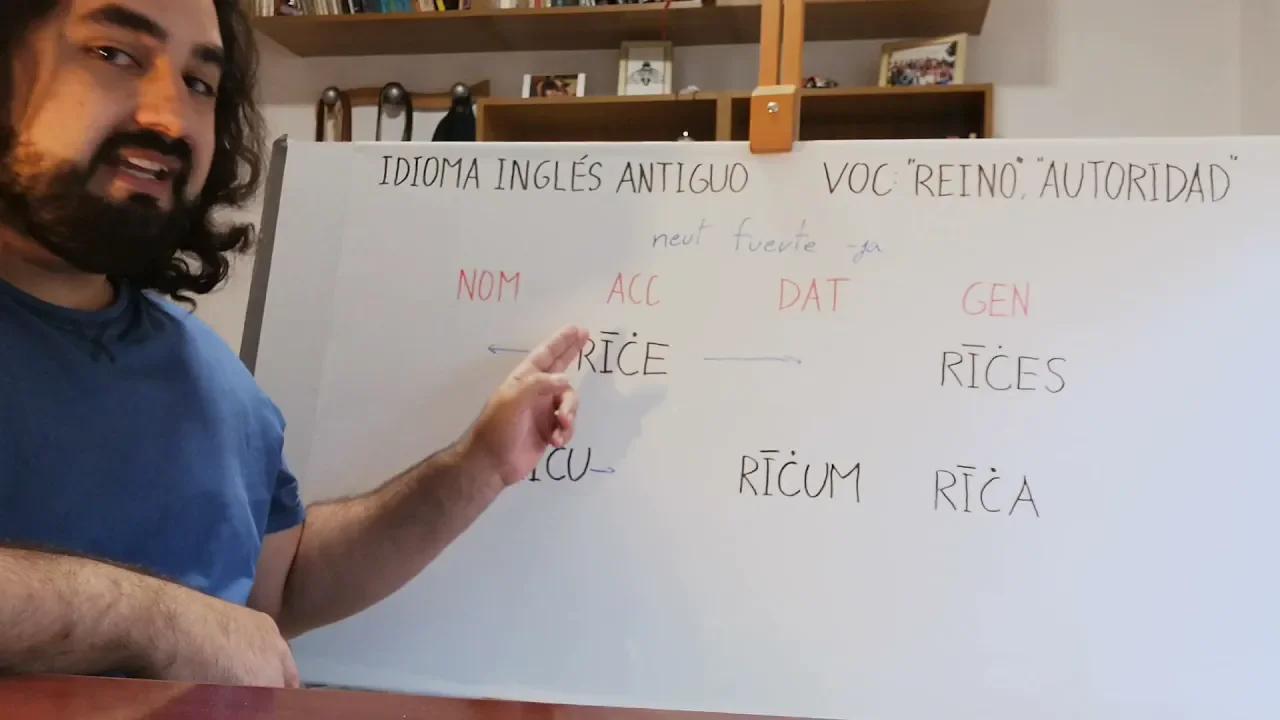 IDIOMA INGLÉS ANTIGUO VOC: "REINO", "AUTORIDAD"
neut fuerte -ja
NOM ACC DAT GEN
← RĪĊE → RĪĊES
→ RĪĊUM RĪĊA